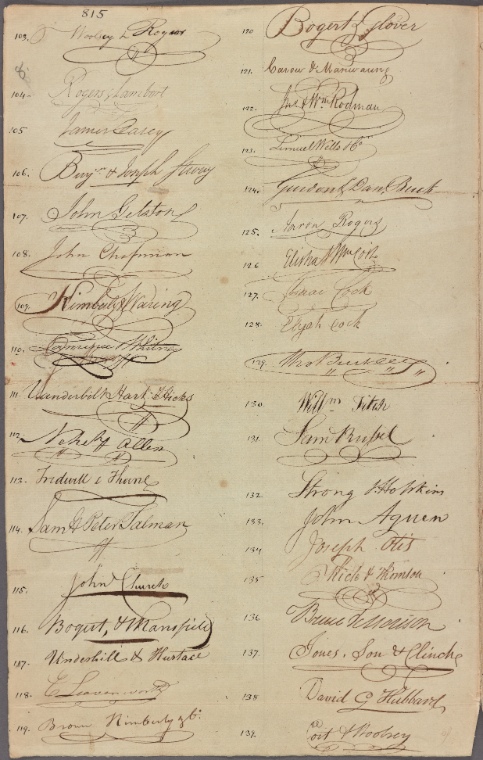 815
103. Worley L Rogers
104. Rogers & Lambert
105 James Carey
106. Benjn & Joseph Strong
107. John Gelston
108. John Chapman
109. Kimberly & Waring
110. & Whitney
111 Vanderbilt Hart & Hicks
112. Allen
113. & Thorne
114. Saml & Peter Talman
115. John Church
116. Bogert, & Mansfield
117. Underhill & Eustace
118. E Leavenworth
119. Brown Kimberly & Co.
120 Bogert & Glover
121. Carow & Manwaring
122. Jas & Wm Rodman
123. Lemuel Wells & Co
124. Gurdon & Danl Buck
125. Aaron Rogers
126 Elisha & Wm Coit
127. Isaac Cock
128. Elijah Cock
129. Thos Buckley
130. Willm Fitch
131. Saml Russel
132. Strong & Hopkins
133. John
134 Joseph Otis
135 Hicks & Thornton
136
137. Jones, Son & Clinch
138 David G Hubbard
139. Coit & Woolsey